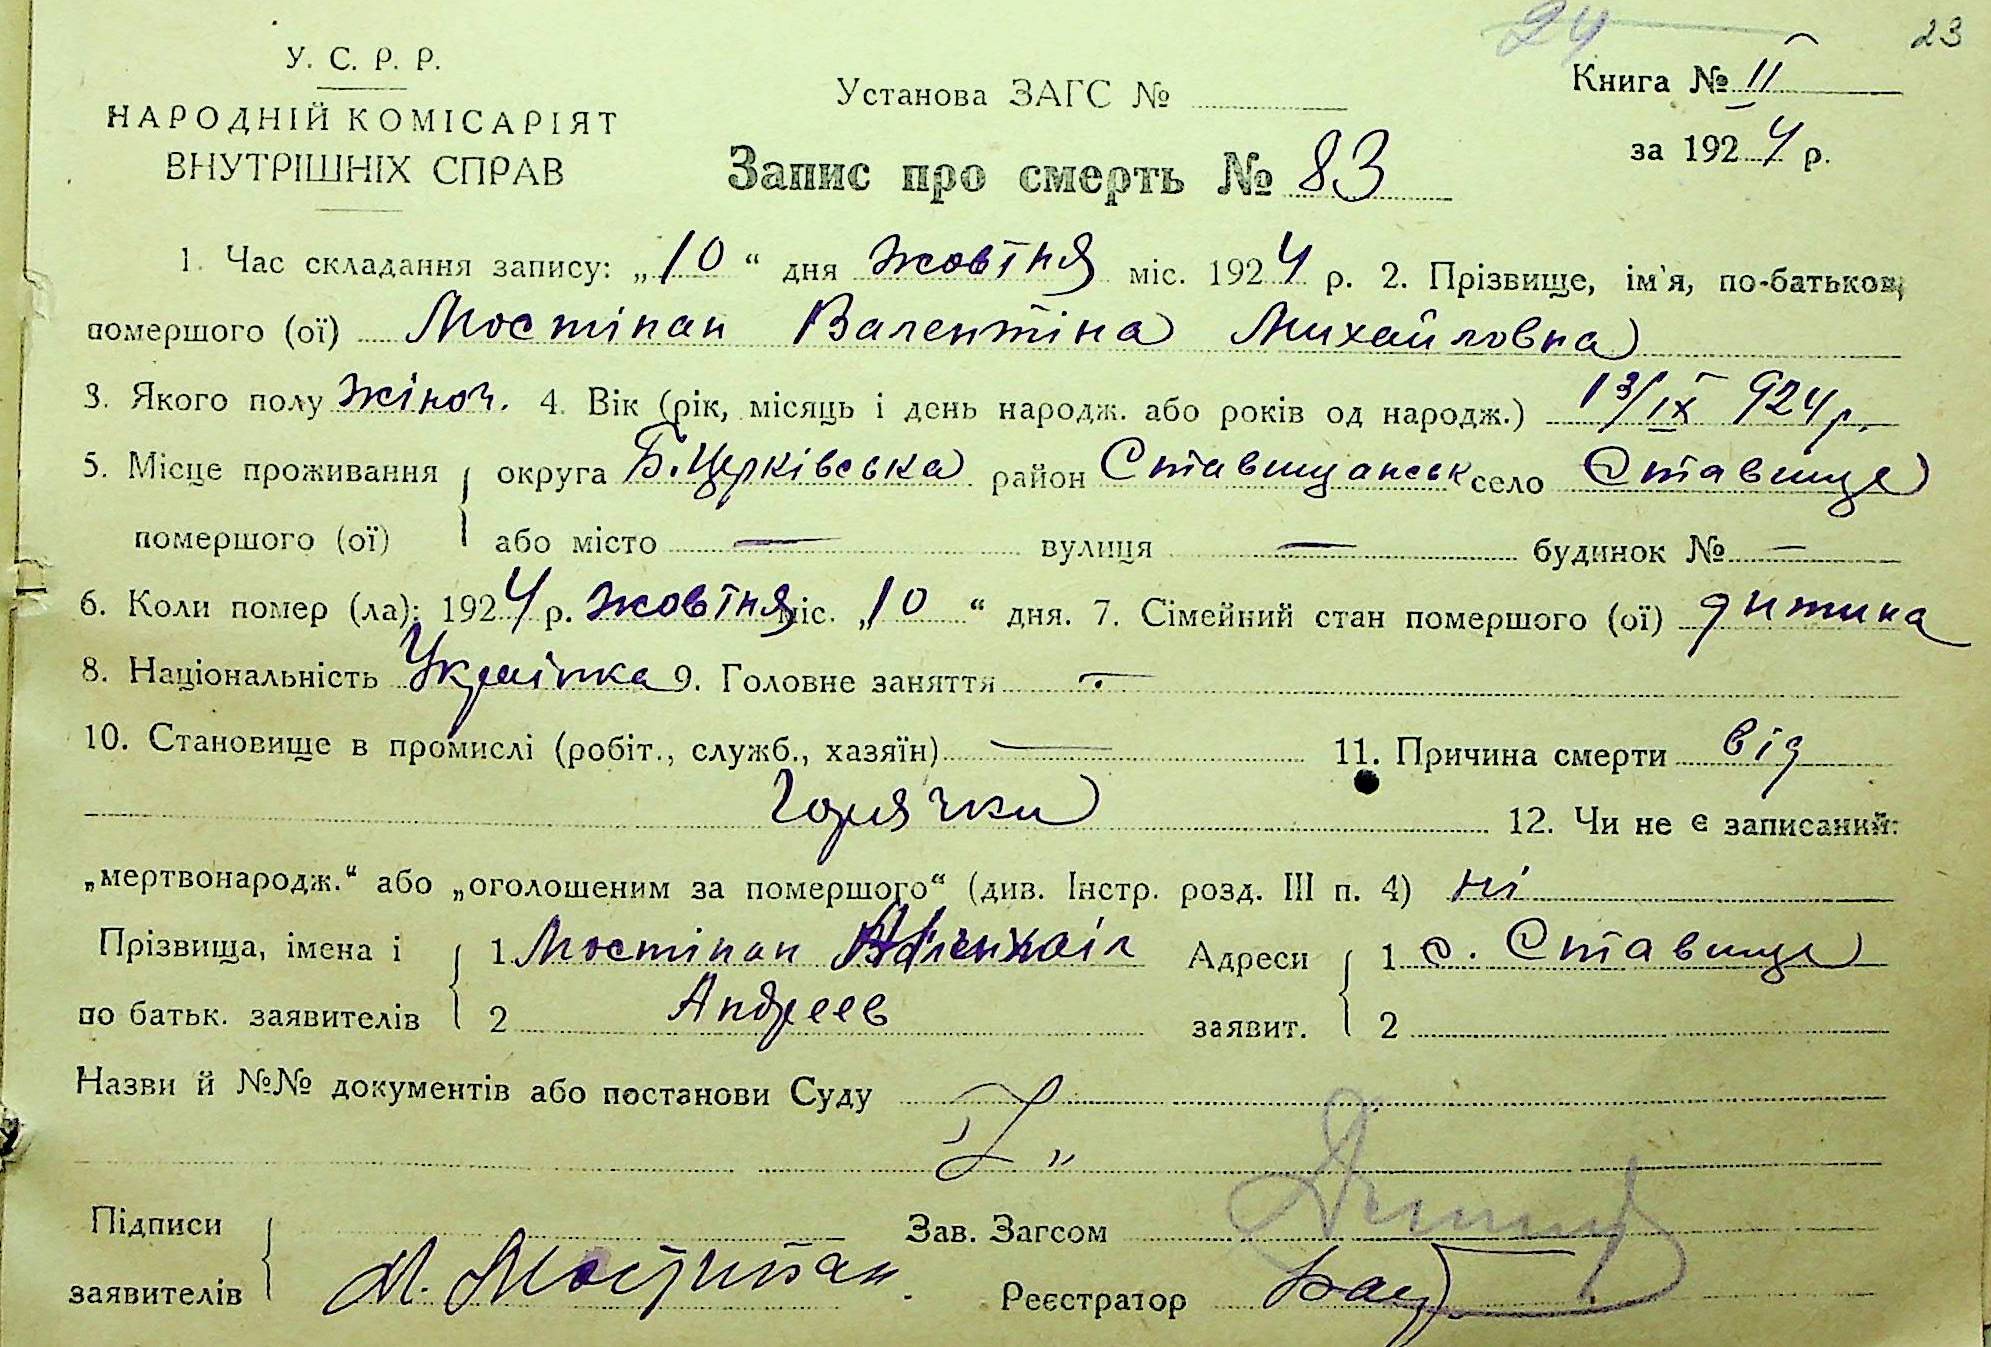 24 23
У. С. Р. Р.
НАРОДНІЙ КОМІСАРІЯТ
ВНУТРІШНІХ СПРАВ
Установа ЗАГС №
Запис про смерть № 83
Книга № II
за 1924 р.
1. Час складання запису: „10“ дня жовтня міс. 1924 р. 2. Прізвище, ім'я, по-батькові
помершого (ої) Мостіпан Валентіна Михайловна
3. Якого полу жіноч. 4. Вік (рік, місяць і день народж. або років од народж.) 13/IX 924 р.
5. Місце проживання округа Б. Церківська район Ставищанськ село Ставище
помершого (ої) або місто — вулиця — будинок № —
6. Коли помер (ла): 1924 р. жовтня міс. „10“ дня. 7. Сімейний стан помершого (ої) дитина
8. Національність Українка 9. Головне заняття —
10. Становище в промислі (робіт., служб., хазяїн) — 11. Причина смерти від
горячки 12. Чи не є записаний:
„мертвонародж.“ або „оголошеним за помершого“ (див. Інстр. розд. III п. 4) ні
Прізвища, імена і 1 Мостіпан Адреси 1 с. Ставище
по батьк. заявителів 2 Андреев заявит. 2
Назви й №№ документів або постанови Суду
Підписи Зав. Загсом
заявителів М. Реєстратор